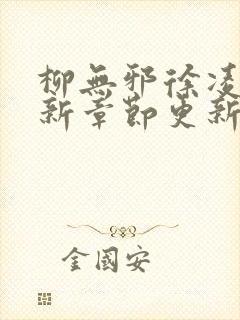 柳無邪徐凌
新章節更新
金國安